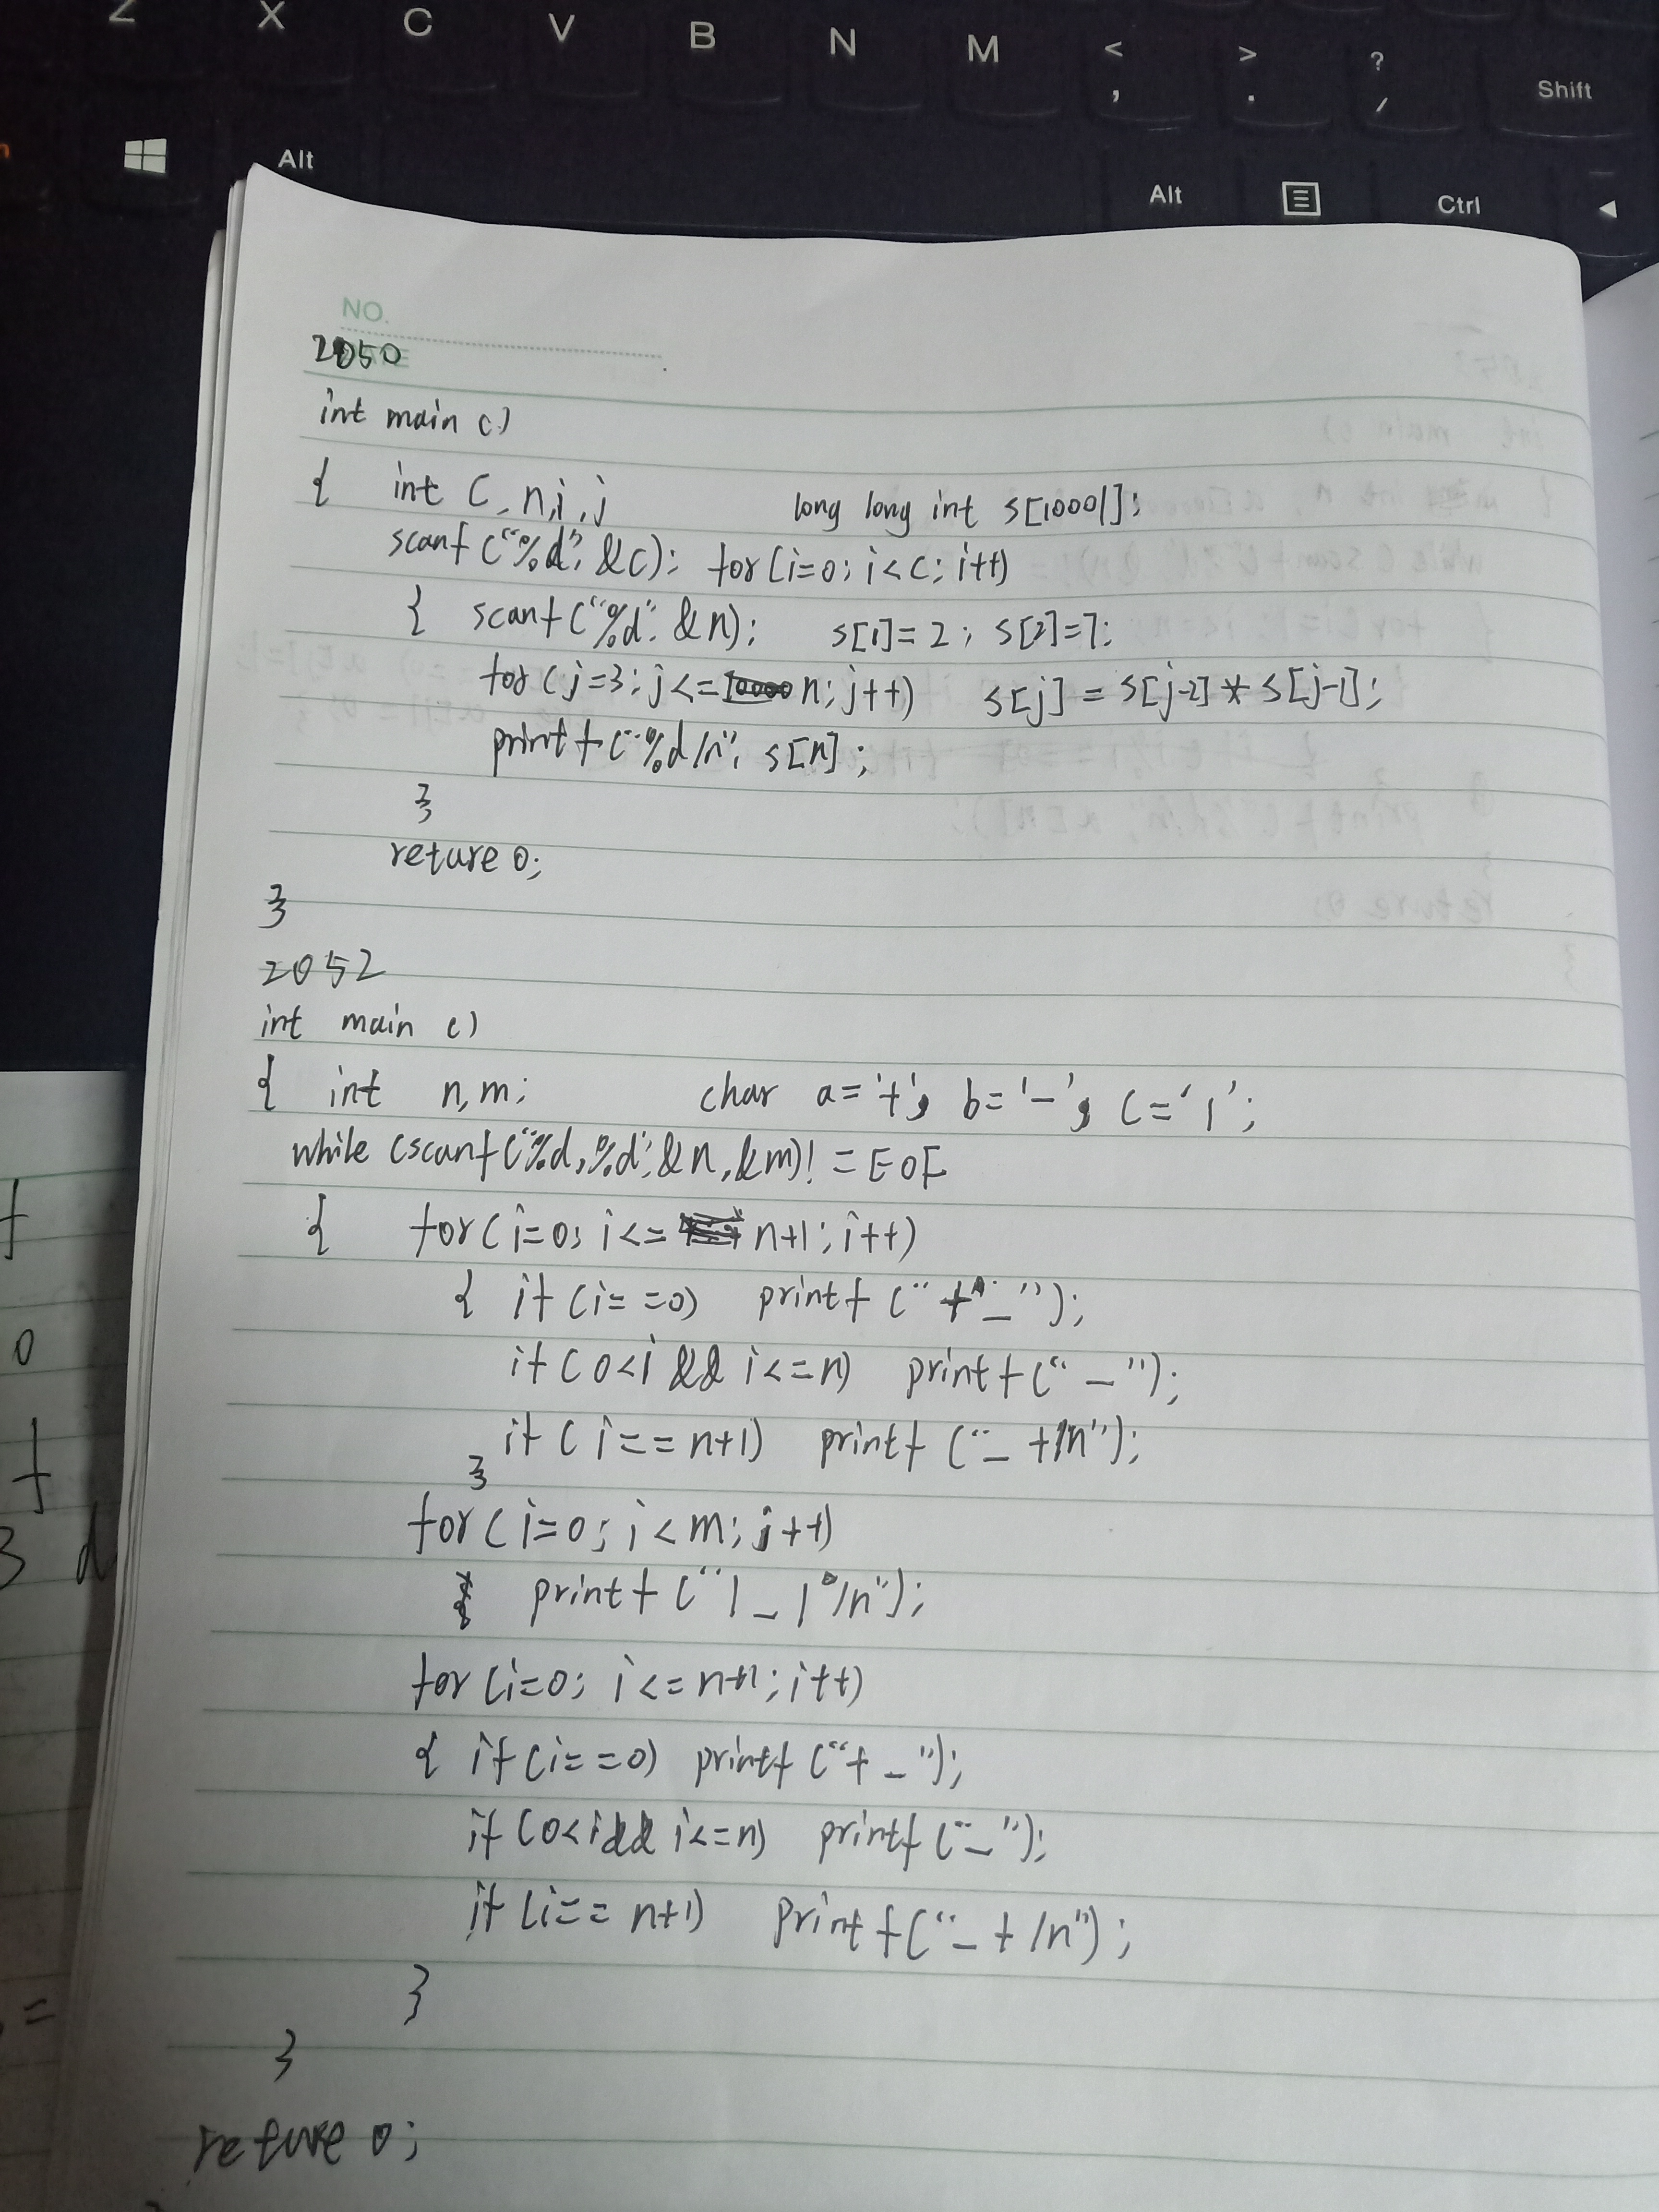 Z X C V B N M < , > . ? / Shift
Alt Alt Ctrl
NO.
2050
int main ()
{ int C, n,i,j long long int s[10001];
scanf ("%d", &C); for (i=0; i<C; i++)
{ scanf ("%d", &n); s[1]=2; s[2]=7;
for (j=3; j<= n; j++) s[j] = s[j-2] * s[j-1];
printf ("%d/n", s[n];
}
reture 0;
}
2052
int main ()
{ int n,m; char a='+', b='-', c='|';
while (scanf ("%d,%d", &n,&m)!=EOF
{ for (i=0; i<= n+1; i++)
{ if (i==0) printf ("+-");
if (0<i && i<=n) printf ("-");
if (i==n+1) printf ("- +/n");
}
for (i=0; i<m; j++)
printf ("|_|/n");
for (i=0; i<=n+1; i++)
{ if (i==0) printf ("+-");
if (0<i&& i<=n) printf ("-");
if (i==n+1) printf ("-+/n");
}
}
reture 0;